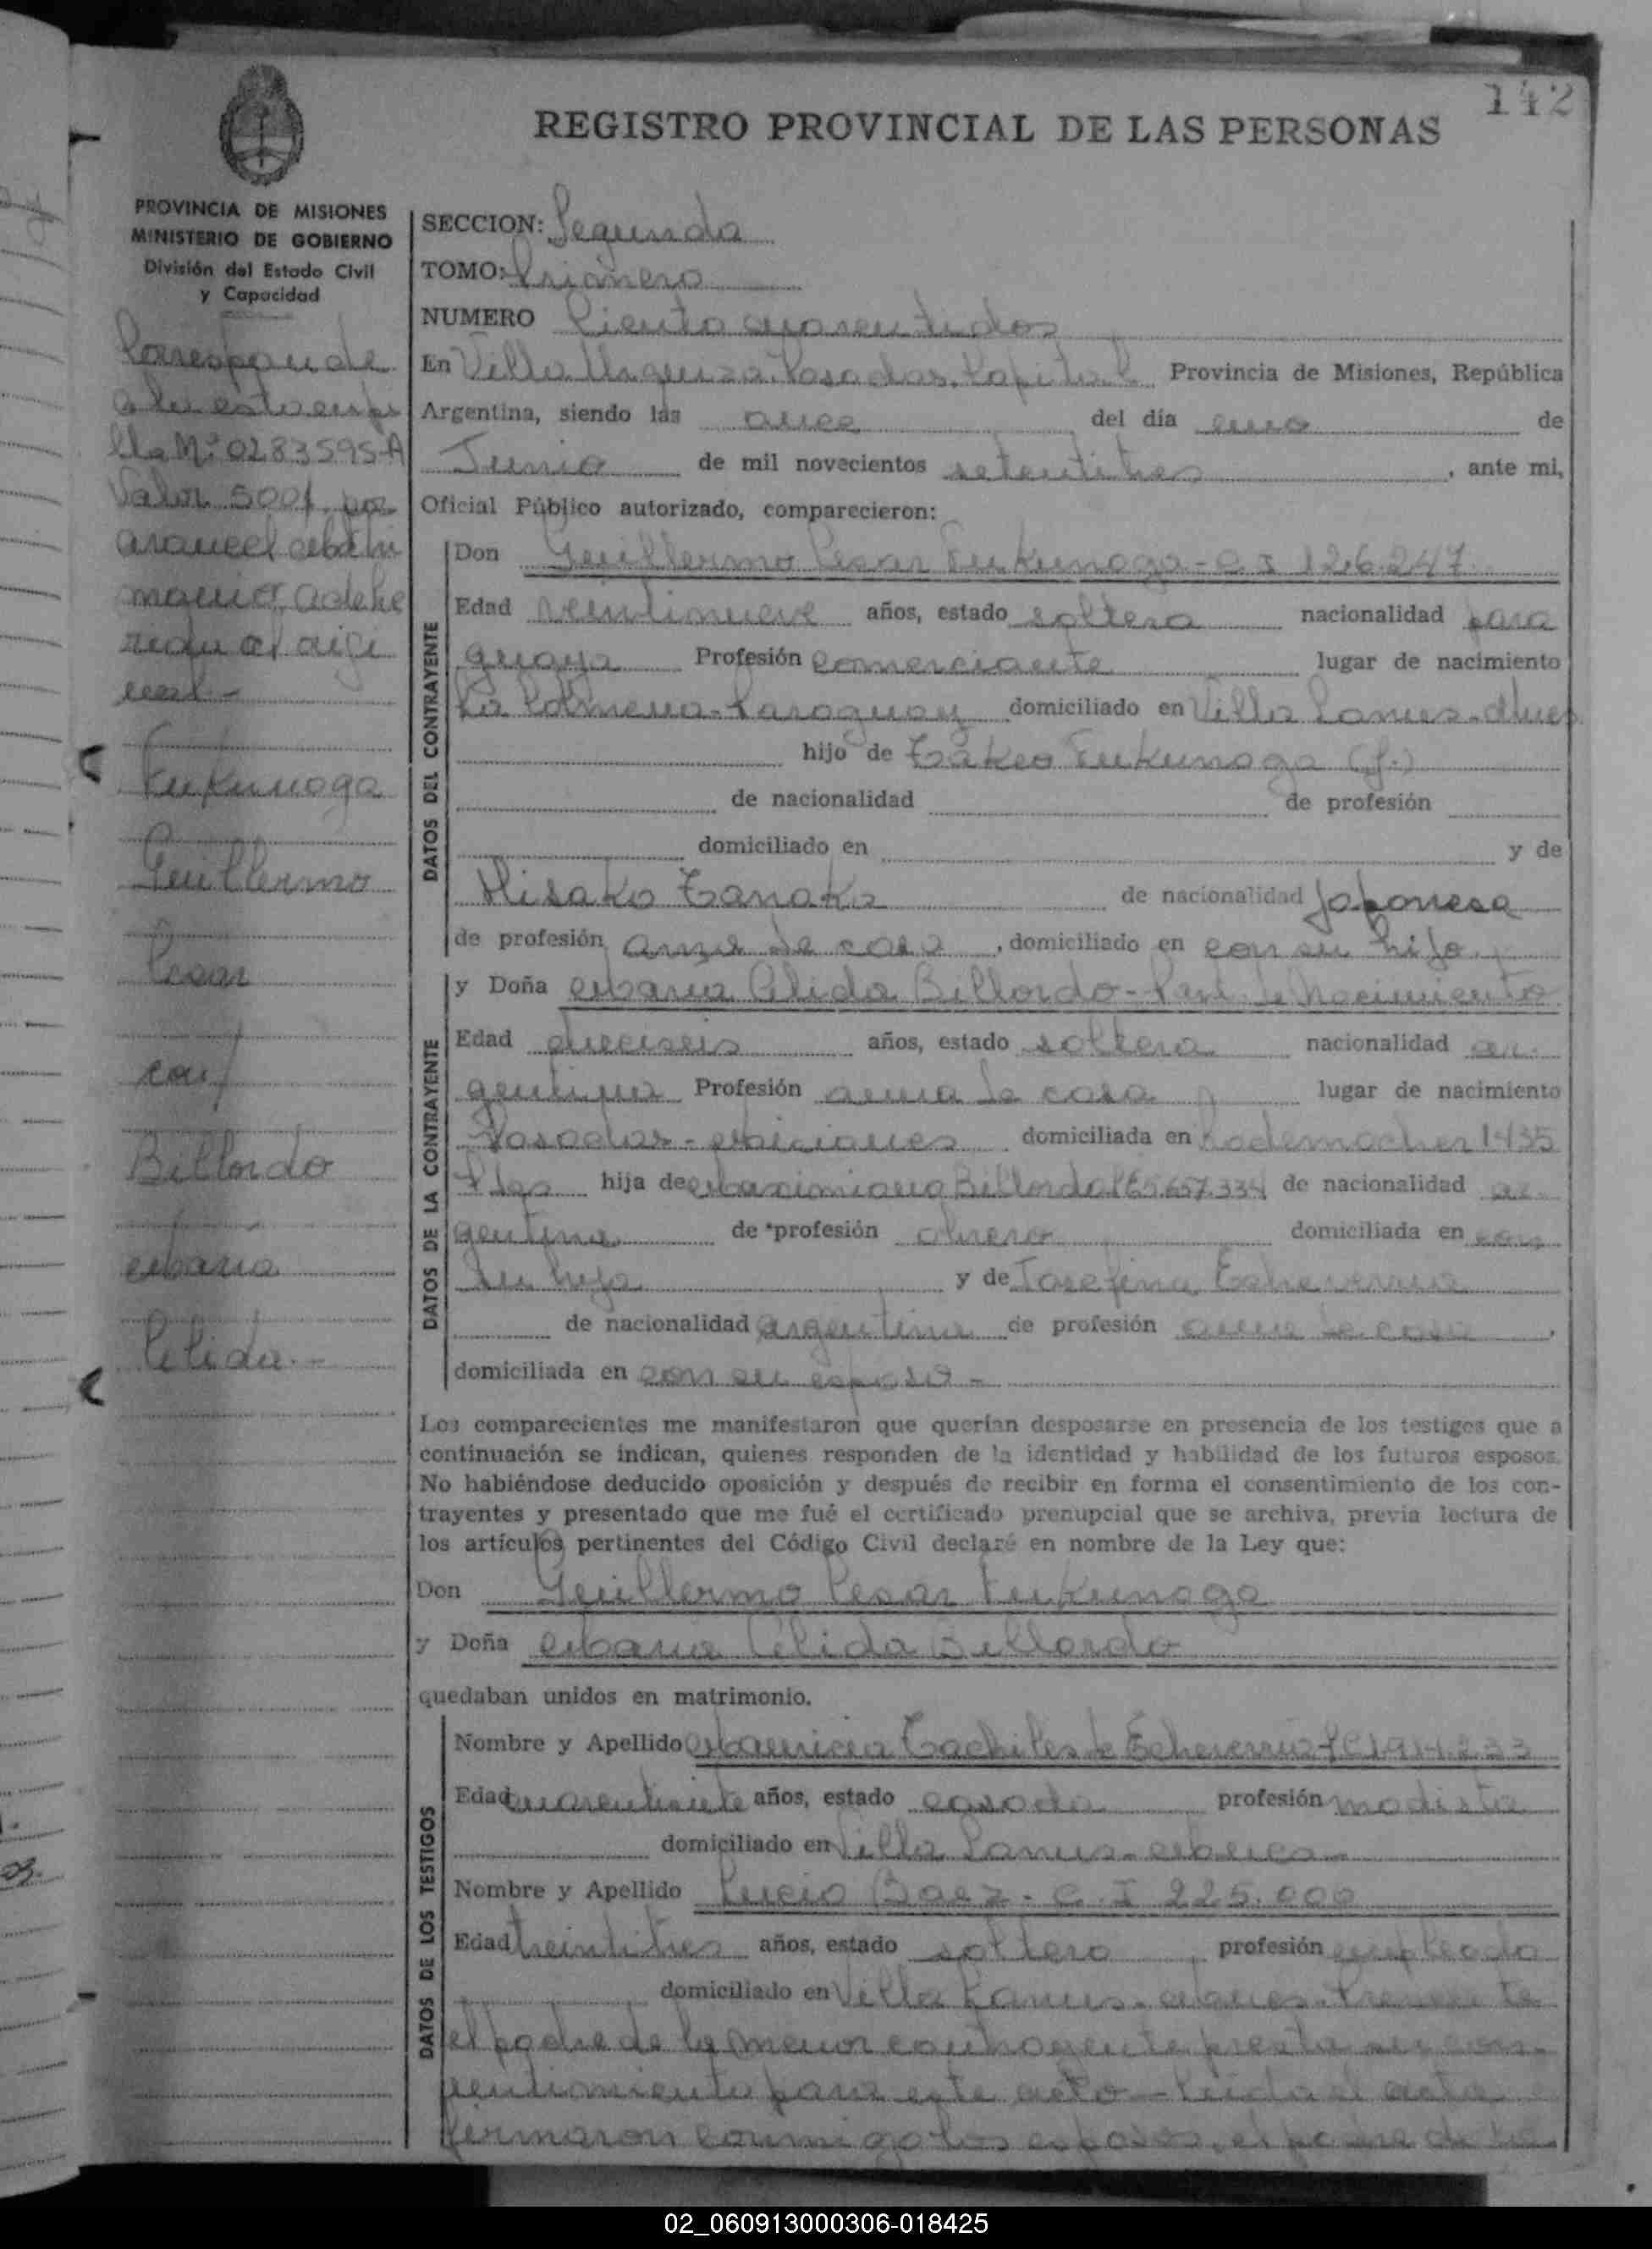 142
REGISTRO PROVINCIAL DE LAS PERSONAS
PROVINCIA DE MISIONES
MINISTERIO DE GOBIERNO
División del Estado Civil
y Capacidad
Corresponde
a la estampi
lla Nº 0283595-A
Valor 500$ por
arancel del
matrimonio
Fukunaga
Guillermo
Cesar
con
Billordo
Maria
Celida.-
SECCION: Segunda
TOMO: Primero
NUMERO Ciento cuarentidos
En Villa Urquiza. Posadas. Capital Provincia de Misiones, República
Argentina, siendo las once del día uno de
Junio de mil novecientos setentitres, ante mi,
Oficial Público autorizado, comparecieron:
DATOS DEL CONTRAYENTE
Don Guillermo Cesar Fukunaga - C I 126.247
Edad veintinueve años, estado soltero nacionalidad para
guaya Profesión comerciante lugar de nacimiento
La Colmena - Paraguay domiciliado en Villa Lanus - Mnes
hijo de Takeo Fukunaga (f.)
de nacionalidad de profesión
domiciliado en y de
Hisako Tanaka de nacionalidad Japonesa
de profesión ama de casa, domiciliado en con su hijo
DATOS DE LA CONTRAYENTE
y Doña Maria Celida Billordo - Part. de Nacimiento
Edad dieciseis años, estado soltera nacionalidad ar
gentina Profesión ama de casa lugar de nacimiento
Posadas - Misiones domiciliada en Rademacher 1435
Pdas hija de Maximiano Billordo 5.657.334 de nacionalidad ar
gentina de profesión obrero domiciliada en con
su hija y de Josefina Echeverria
de nacionalidad argentina de profesión ama de casa,
domiciliada en con su esposo -
Los comparecientes me manifestaron que querían desposarse en presencia de los testigos que a
continuación se indican, quienes responden de la identidad y habilidad de los futuros esposos.
No habiéndose deducido oposición y después de recibir en forma el consentimiento de los con-
trayentes y presentado que me fué el certificado prenupcial que se archiva, previa lectura de
los artículos pertinentes del Código Civil declaré en nombre de la Ley que:
Don Guillermo Cesar Fukunaga
y Doña Maria Celida Billordo
quedaban unidos en matrimonio.
DATOS DE LOS TESTIGOS
Nombre y Apellido Mauricia de Echeverria LC 1.914.233
Edad cuarentisiete años, estado casada profesión modista
domiciliado en Villa Lanus - Mnes -
Nombre y Apellido Lucio Baez - C. I 225.000
Edad treintitres años, estado soltero profesión empleado
domiciliado en Villa Lanus - Mnes. Presente
el padre de la menor contrayente presta su con-
sentimiento para este acto - Leida el acta
firmaron conmigo los esposos, el padre de la
02_060913000306-018425